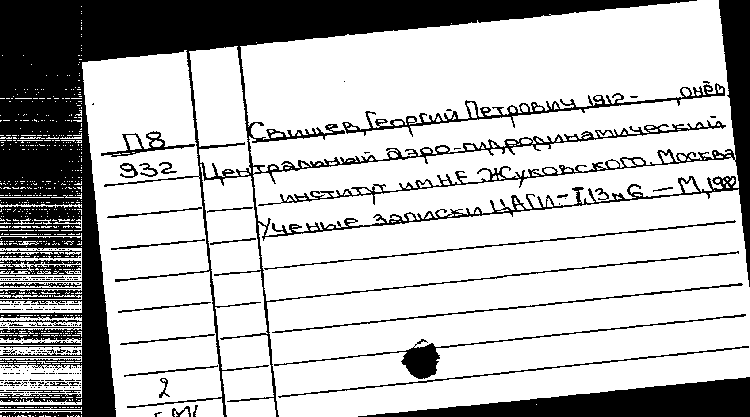 П8 Свищев, Георгий Петрович, 1912- , о нём
932 Центральный аэро-гидродинамический
институт им.Н.Е.Жуковского. Москва
Ученые записки ЦАГИ-Т.13 №6 — М, 1982
2